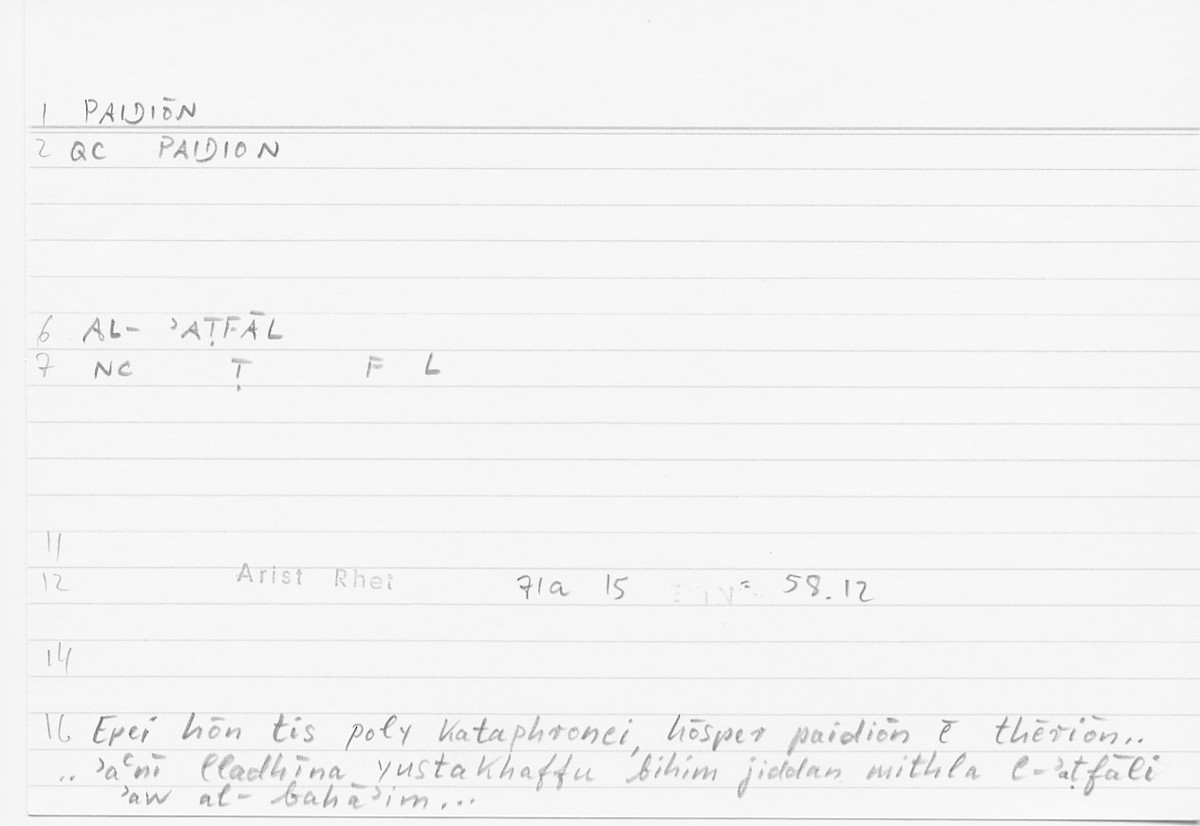 1 PAIDIŌN
2 QC PAIDION
6 AL- ʾAṬFĀL
7 NC Ṭ F L
11
12 Arist Rhet 71a 15 = 58.12
14
16 Epei hōn tis poly kataphronei, hōsper paidiōn ē thēriōn..
.. ʾaʿnī lladhīna yustakhaffu bihim jiddan mithla l-ʾaṭfāli
ʾaw al-bahāʾim...